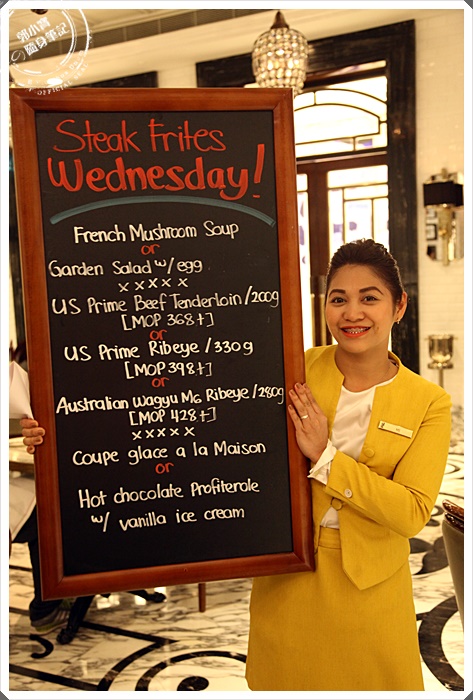 郊小寶
の隨身筆記
Steak Frites
Wednesday!
French Mushroom Soup
or
Garden Salad w/ egg
xxxxx
US Prime Beef Tenderloin/200g
[MOP 368+]
or
US Prime Ribeye /330g
[MOP 398+]
or
Australian Wagyu M6 Ribeye/280g
[MOP 428+]
xxxxx
Coupe glace a la Maison
or
Hot chocolate Profiterole
w/ vanilla ice cream